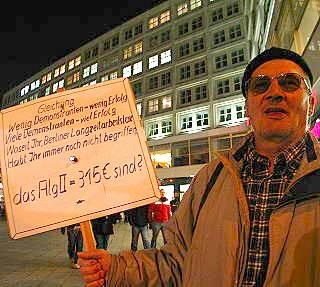 Gleichung
Wenig Demonstranten - wenig Erfolg
Viele Demonstranten - viel Erfolg
Habt Ihr, Berliner Langzeitarbeitslose
Habt Ihr immer noch nicht begriffen
das Alg II = 345€ sind?